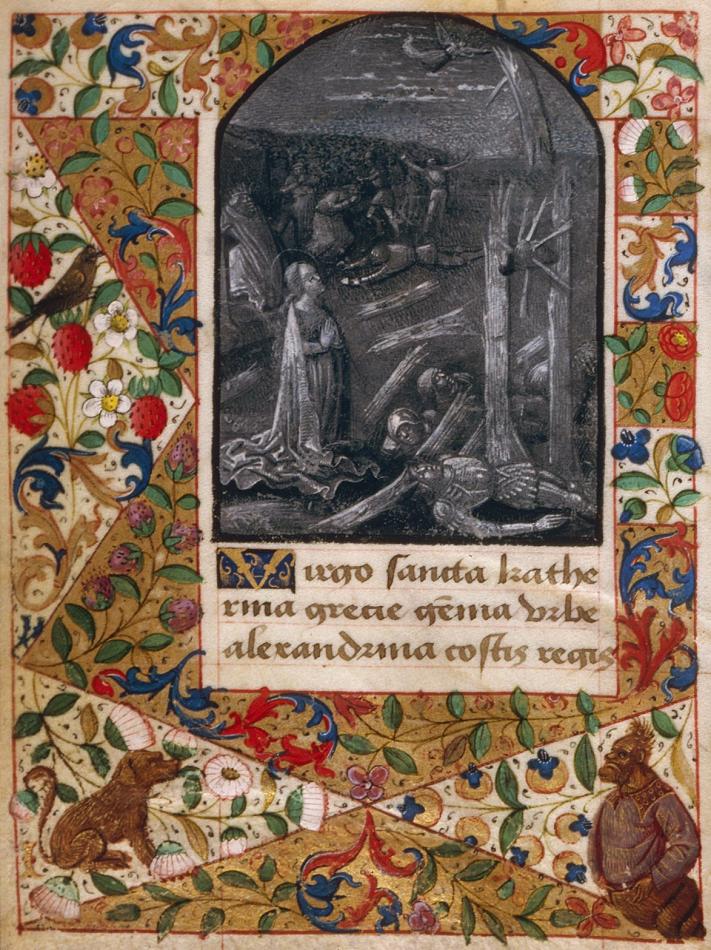 Virgo sancta kathe
rina grecie gẽma vrbe
alexandrina costis regis